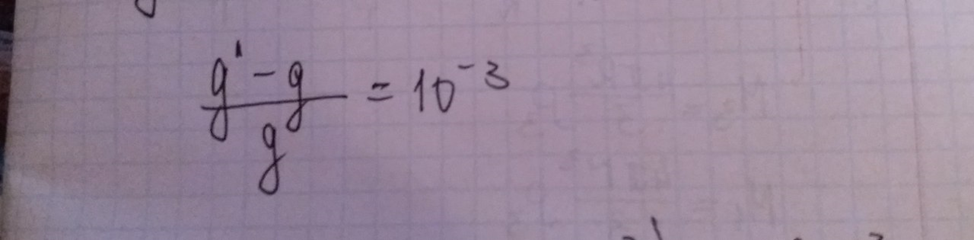 (g' - g) / g = 10⁻³